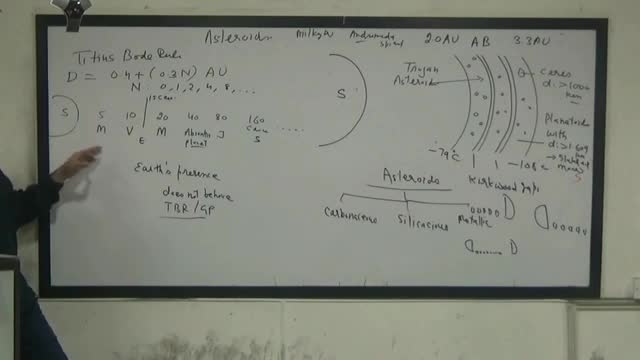 Asteroids Milkyway Andromeda spiral 2.0AU AB 3.3AU
Titius Bode Rule
D = 0.4 + (0.3N) AU
N = 0, 1, 2, 4, 8, ...
S 5 10 20 40 80 160 ....
M V E M Absent planet J S
Earth's presence
does not behave
TBR/GP
S
Trojan
Asteroids
Ceres
di > 1000 km
Planatoids
with
-79°c -108°c
Kirkwood gaps
Asteroids
Carbonaceous Silicacious Metallic